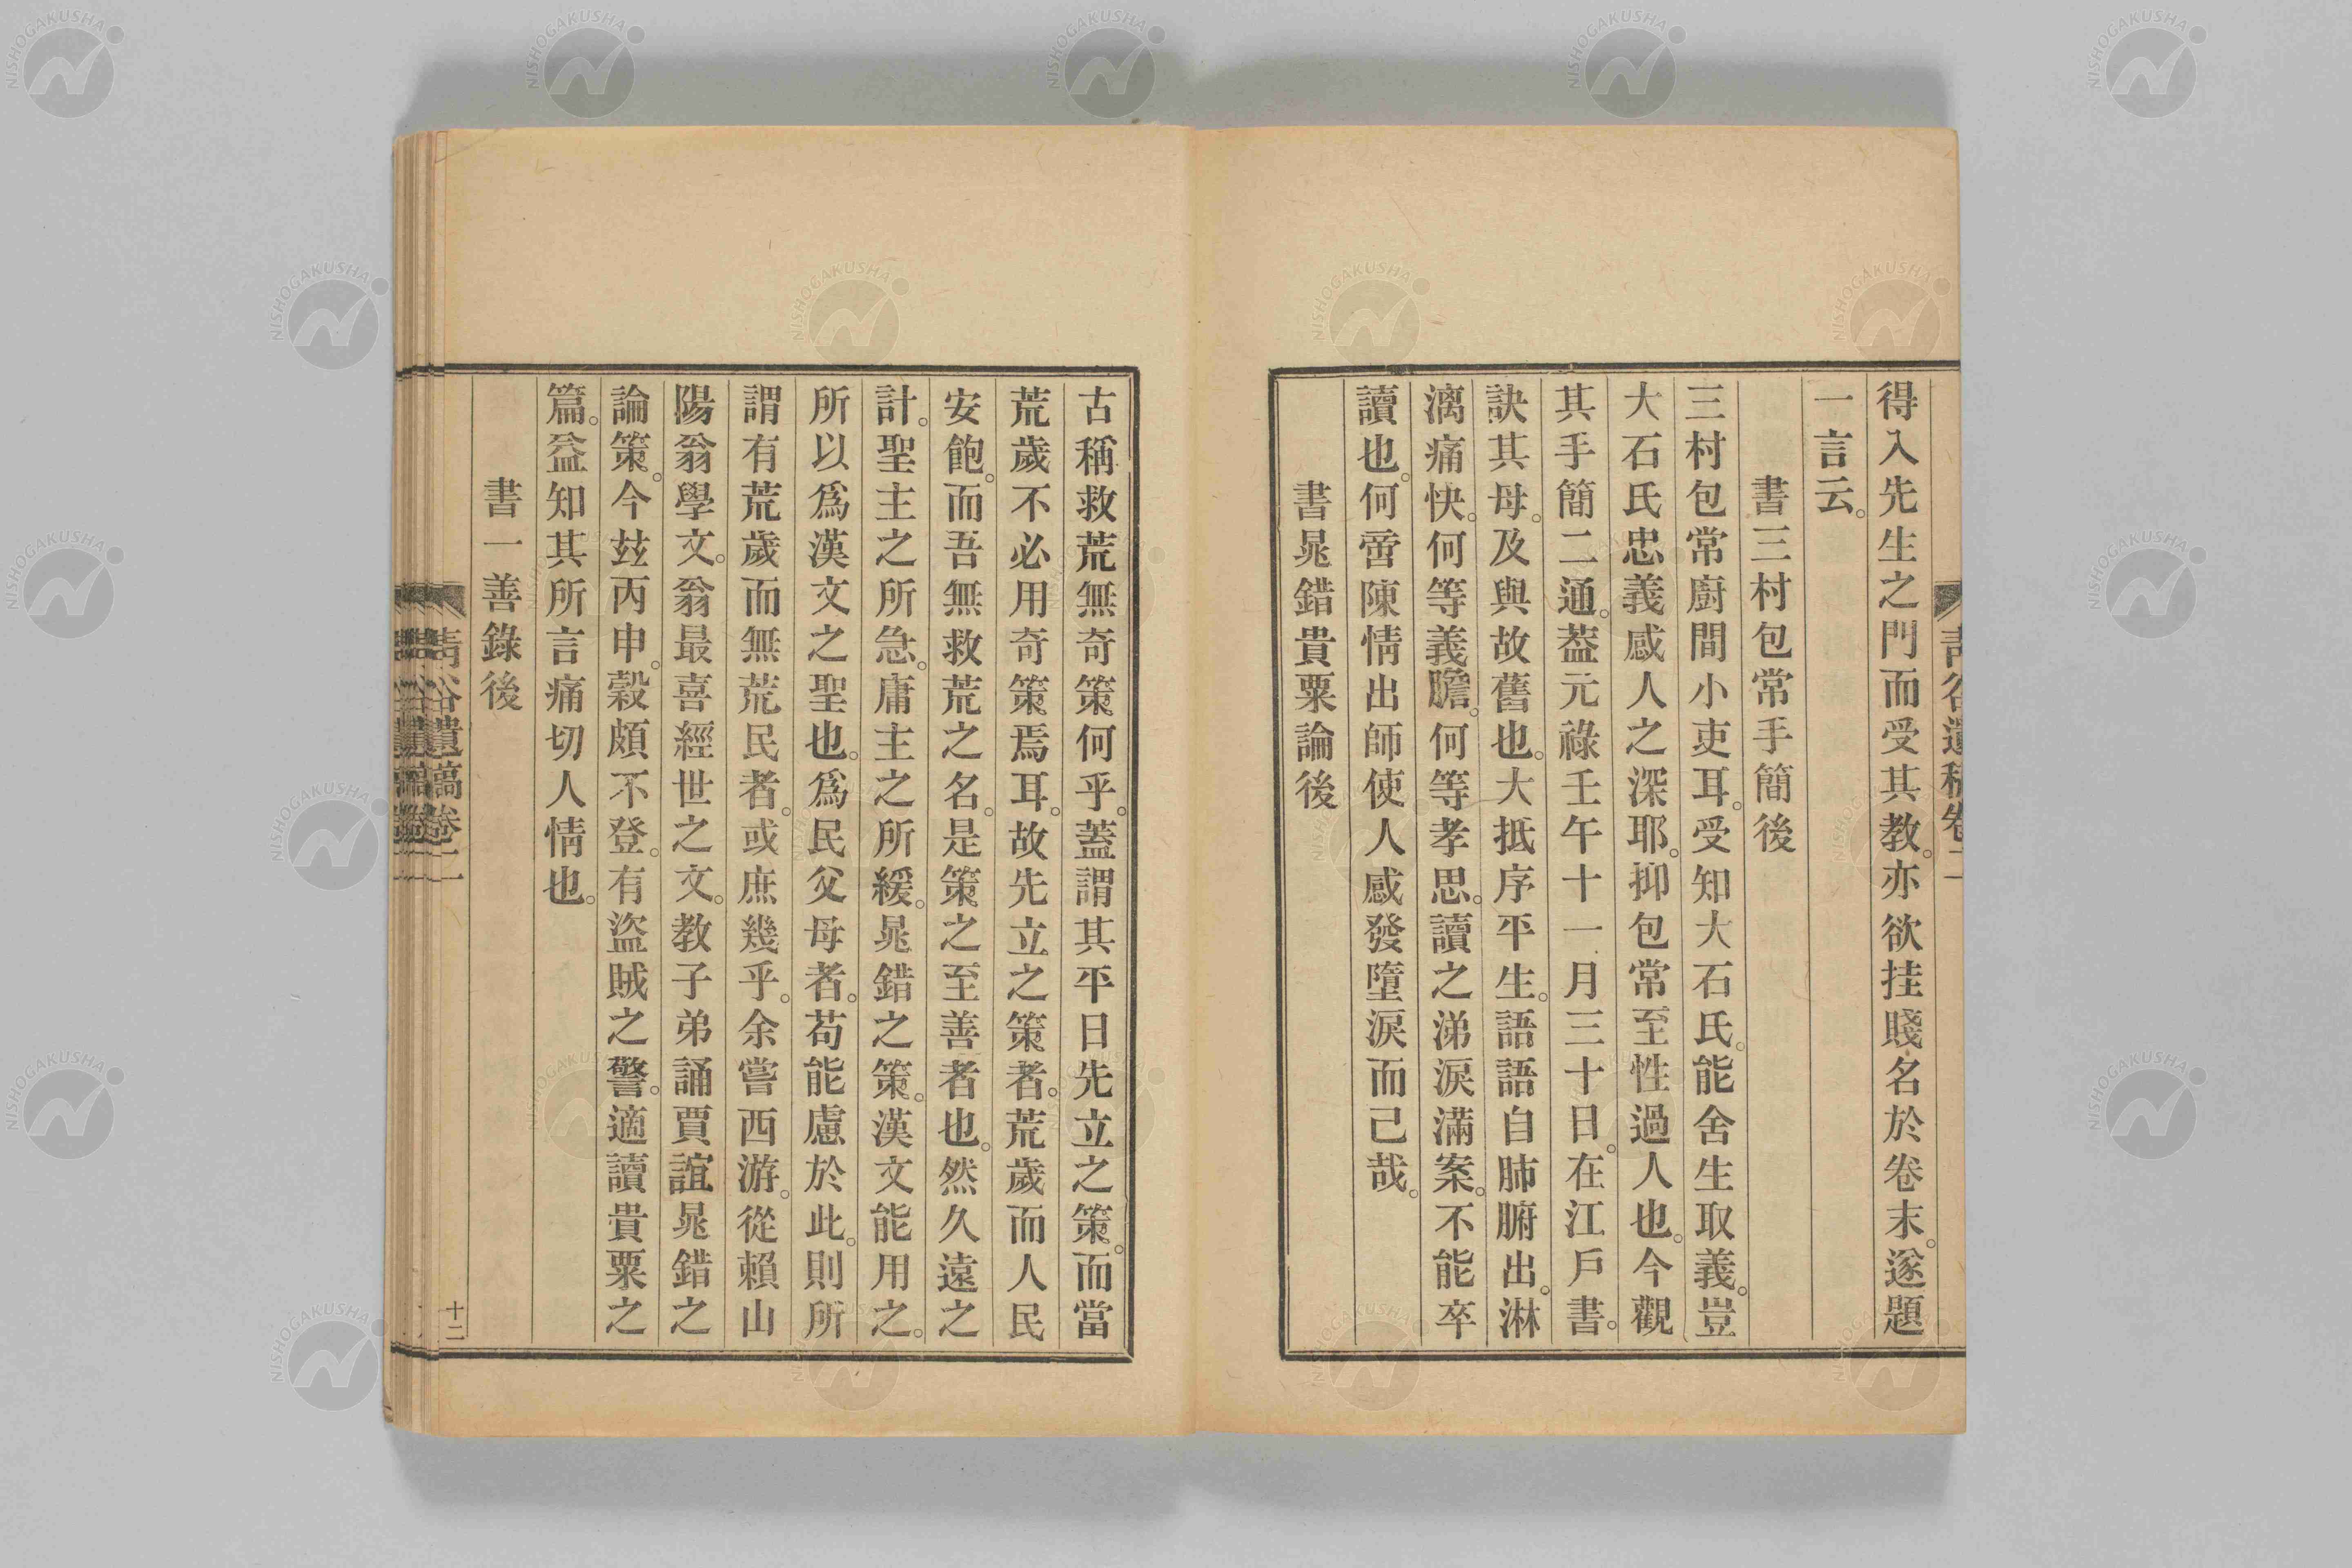 得入先生之門而受其教。亦欲挂賤名於卷末。遂題
一言云。
書三村包常手簡後
三村包常廚間小吏耳。受知大石氏。能舍生取義。豈
大石氏忠義感人之深耶。抑包常至性過人也。今觀
其手簡二通。葢元祿壬午十一月三十日。在江戶書。
訣其母。及與故舊也。大抵序平生。語語自肺腑出。淋
漓痛快。何等義膽。何等孝思。讀之涕淚滿案。不能卒
讀也。何啻陳情出師使人感發墮淚而已哉。
書晁錯貴粟論後
古稱救荒無奇策何乎。蓋謂其平日先立之策。而當
荒歲不必用奇策焉耳。故先立之策者。荒歲而人民
安飽。而吾無救荒之名。是策之至善者也。然久遠之
計。聖主之所急。庸主之所緩。晁錯之策。漢文能用之。
所以爲漢文之聖也。爲民父母者。苟能慮於此。則所
謂有荒歲而無荒民者。或庶幾乎。余嘗西游。從賴山
陽翁學文。翁最喜經世之文。教子弟誦賈誼晁錯之
論策。今玆丙申。穀頗不登。有盜賊之警。適讀貴粟之
篇。益知其所言痛切人情也。
書一善錄後
靑谷遺稿卷二
十二
NISHOGAKUSHA